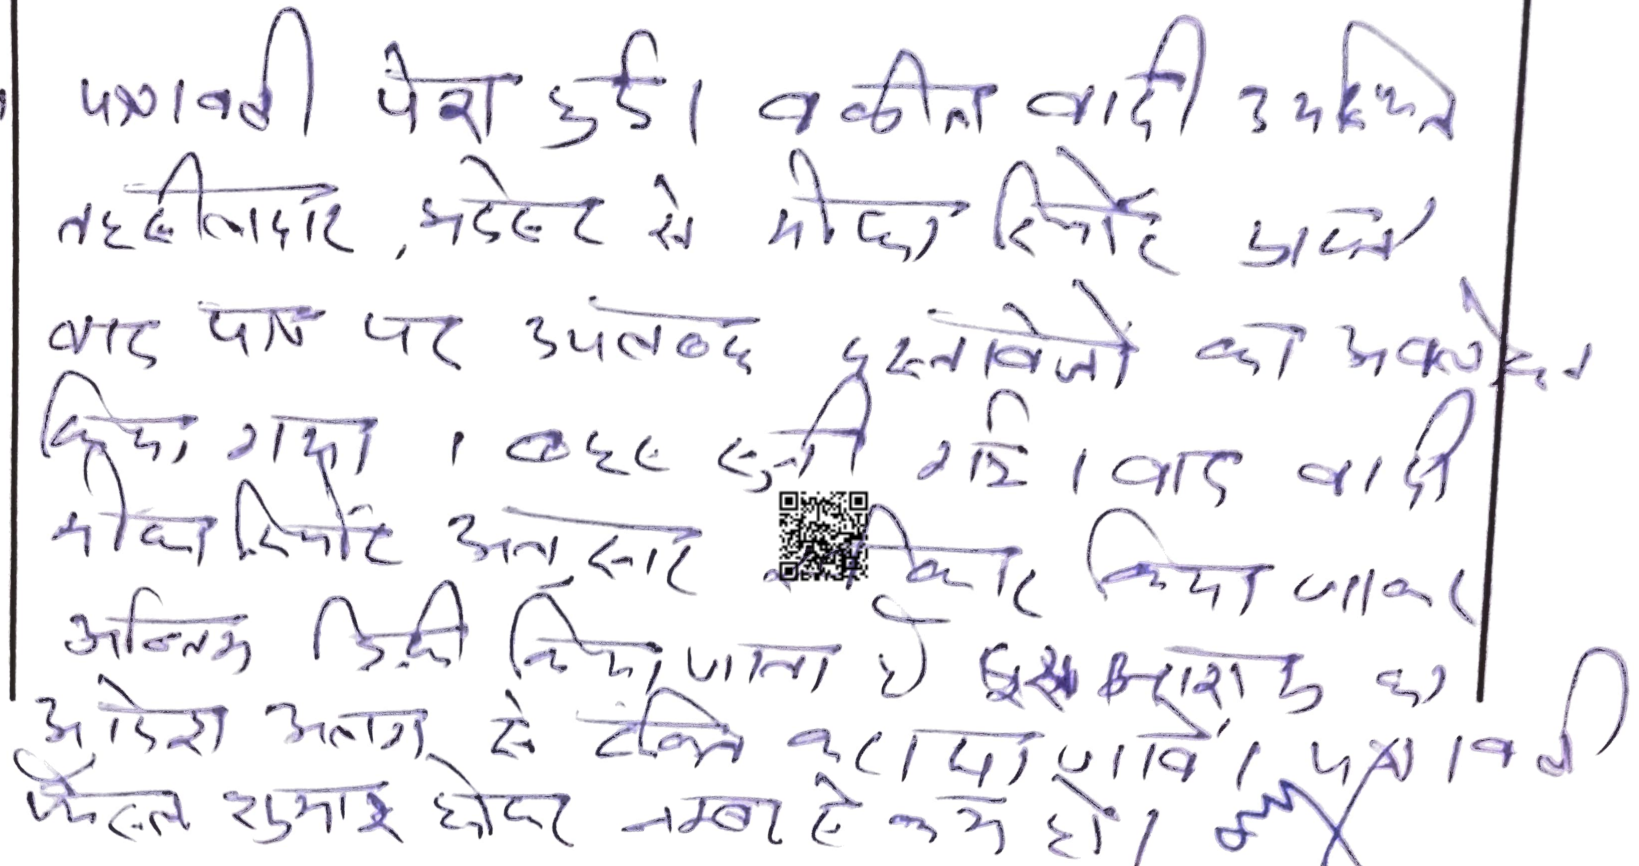 पत्रावली पेश हुई। वकील वादी उपस्थित
तहसीलदार, से मौका रिपोर्ट प्राप्त
वाद पत्र पर उपलब्ध दस्तावेजों का अवलोकन
किया गया । बहस सुनी गई । वाद वादी
मौका रिपोर्ट अनुसार किया जाकर
अन्तिम डिक्री किया जाता है इस आशय का
आदेश अलग से टंकित कराया जावे। पत्रावली
फैसल शुमार होकर नम्बर से कम हो।